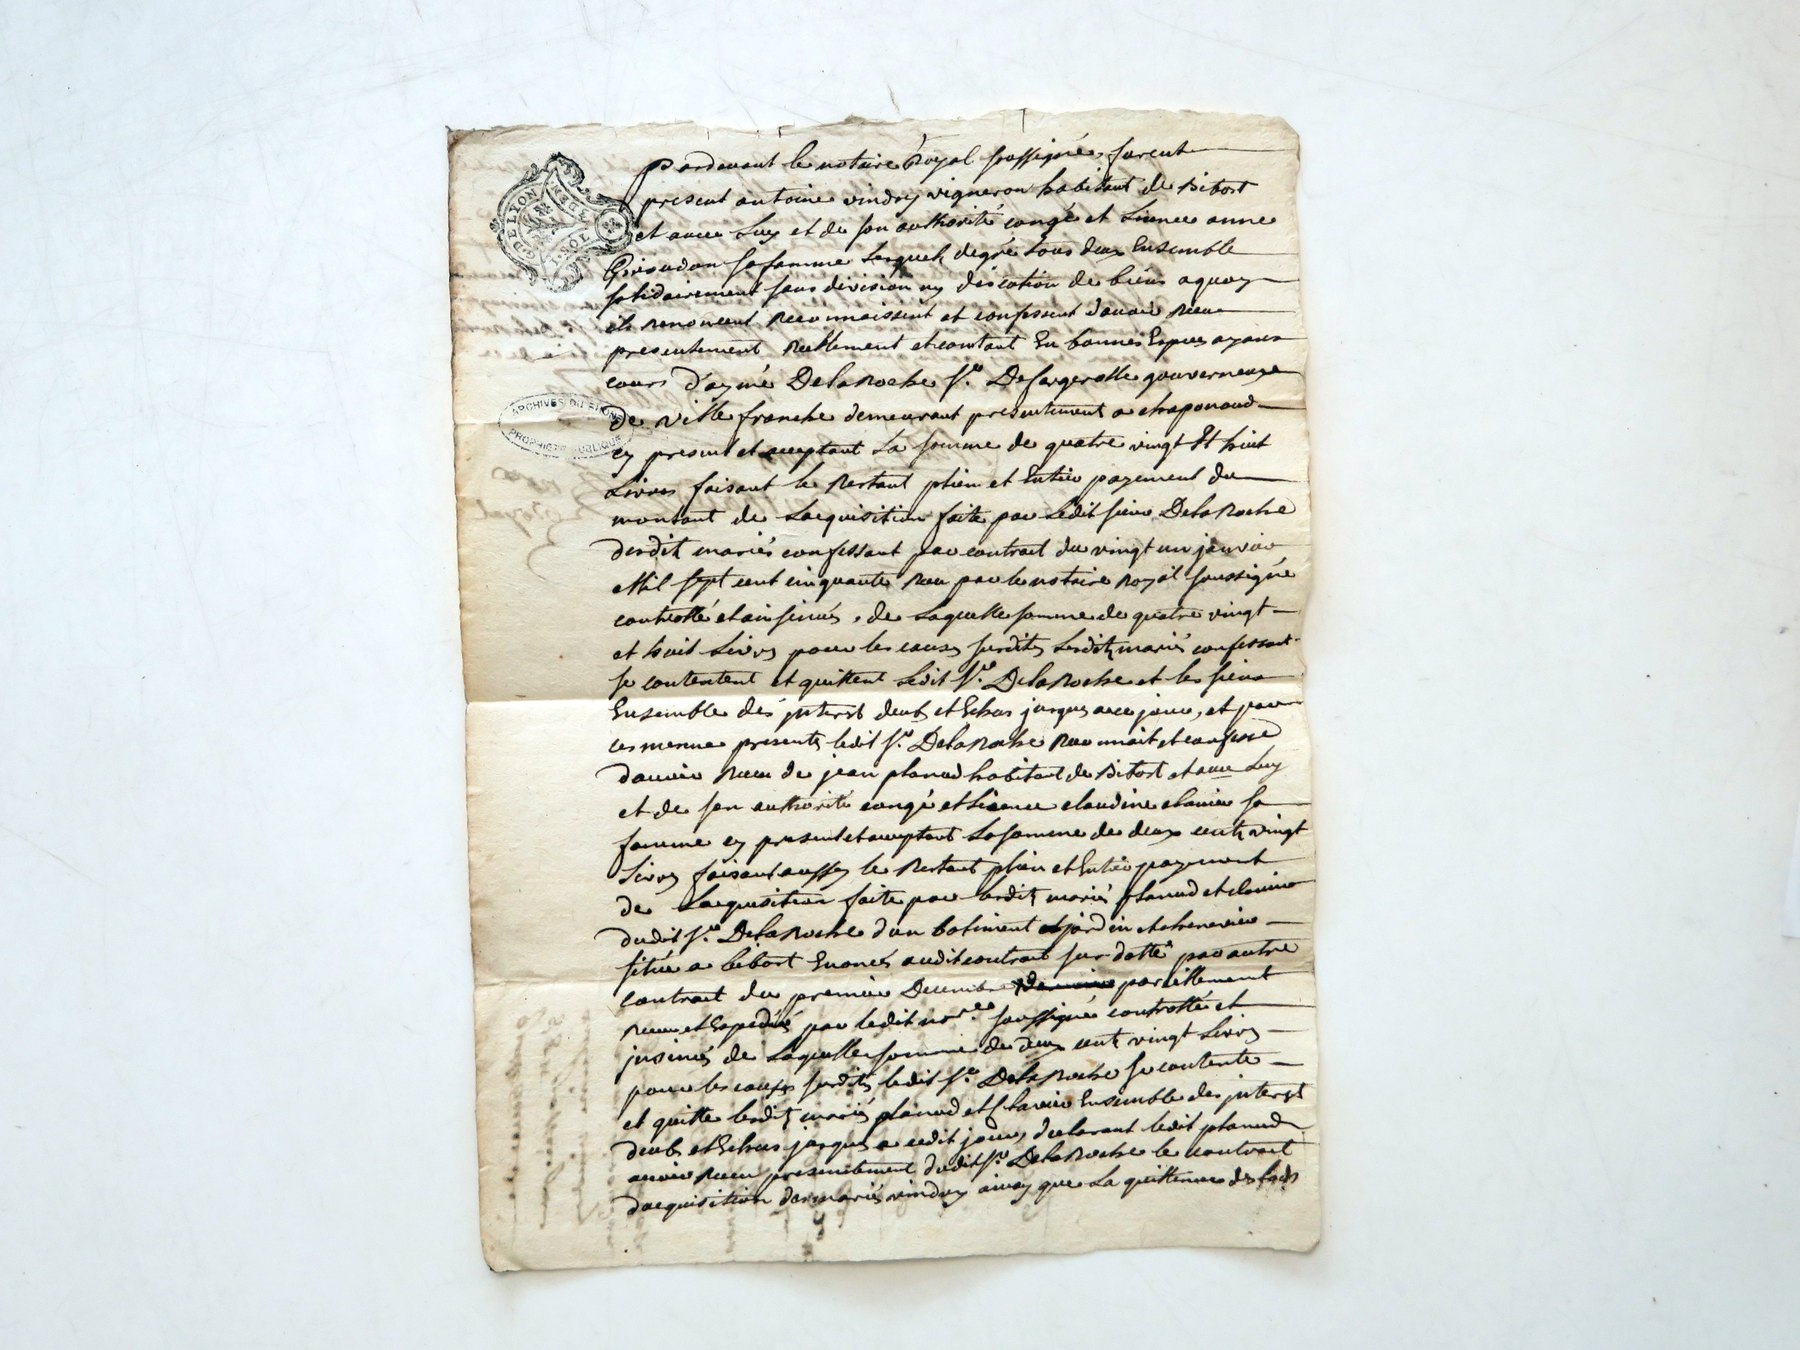 G. DE LYON
ARCHIVES DU RHONE
PROPRIETE PUBLIQUE
Pardevant le notaire Royal soussigné, furent
present antoine vindry vigneron habitant de Bibost
et avec Luy et de son authorité congé et Licence anne
sa famme Lesquels degré tous deux Ensemble
solidairement sans division ny discution de biens aquoy
ils renoncent reconnaissent et confessent d'avoir Receu
presentement reellement et contant En bonnes Espces ayans
cours d'aymé DelaRoche Sr. gouverneur
De ville franche demeurant presentement a chaponand
cy present et acceptant La somme de quatre vingt Et huit
Livres faisant le Restant plein et Entier payement du
montant de Lacquisition faite par Ledit sieur DelaRoche
desdits mariés confessant par contrat du vingt un janvier
Mil sept cent cinquante Receu par le notaire Royal soussigné
controllé et insinué, de Laquelle somme de quatre vingt
et huit Livres pour les causes susdites Lesdits mariés confessant
se contentent et quittent Ledit Sr. DelaRoche et les siens
Ensemble des jnterest deubs et Echus jusques a ce jour, et par
ces mesme presentes ledit Sr. DelaRoche Reconnait et confesse
d'avoir Receu de jean planud habitant de Bibost et avec Luy
et de son authorité congé et Licence claudine clavier sa
famme cy present et acceptant La somme de deux cents vingt
Livres faisant aussy le Restant plein et Entier payement
de Lacquisition faite par lesdits mariés planud et clavier
dudit Sr. DelaRoche d'un batiment et jardin et cheneviere
située a bibost Enoncés audit contrat sus datté par autre
contrat du premier Decembre pareillement
Receu et Expedié par ledit nore. soussigné controllé et
jnsinué de Laquelle somme de deux cents vingt Livres
pour les causes susdites ledit Sr. DelaRoche se contente
et quitte lesdits mariés planud et Clavier Ensemble des jnterest
deubs et Echus jusques a cedit jour, declarant ledit planud
avoir Receu presentement dudit Sr. DelaRoche le contrat
d'acquisition des mariés vindry ainsy que La quittance des